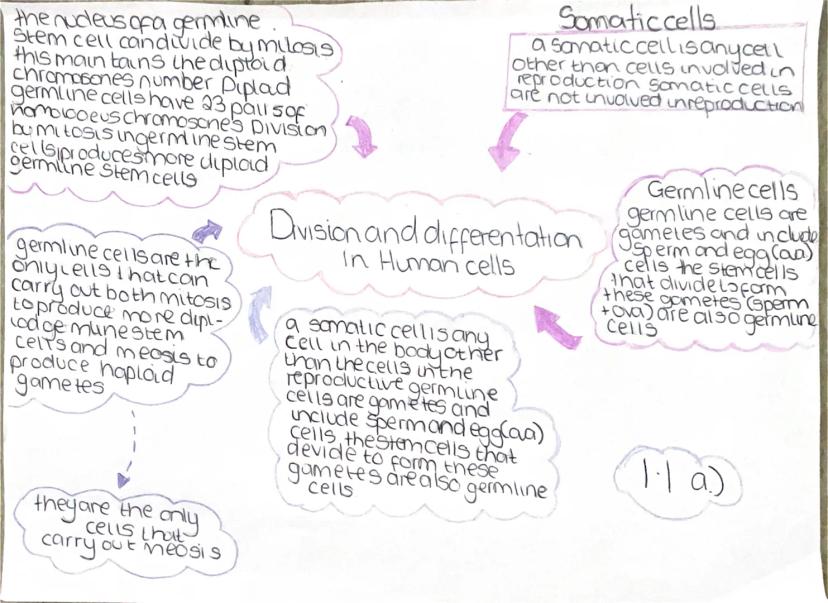 the nucleus of a germline
stem cell can divide by mitosis
this maintains the diptoid
chromosones number Diplad
germline cells have 23 pairs of
homologeus chromosones Division
by mitosis in germline stem
cells produces more diploid
germline stem cells
Somatic cells
a somatic cell is any cell
other than cells involved in
reproduction somatic cells
are not involved in reproduction
Division and differentation
in Human cells
Germline cells
germline cells are
gametes and include
sperm and egg (ova)
cells the stem cells
that divide to form
these gametes (sperm
+ ova) are also germline
cells
germline cells are the
only cells that can
carry out both mitosis
to produce more dipl-
iod germline stem
cells and meosis to
produce haploid
gametes
a somatic cell is any
cell in the body other
than the cells in the
reproductive germline
cells are gametes and
include sperm and egg (ova)
cells the stem cells that
devide to form these
gametes are also germline
cells
they are the only
cells that
carry out meosis
1.1 a)